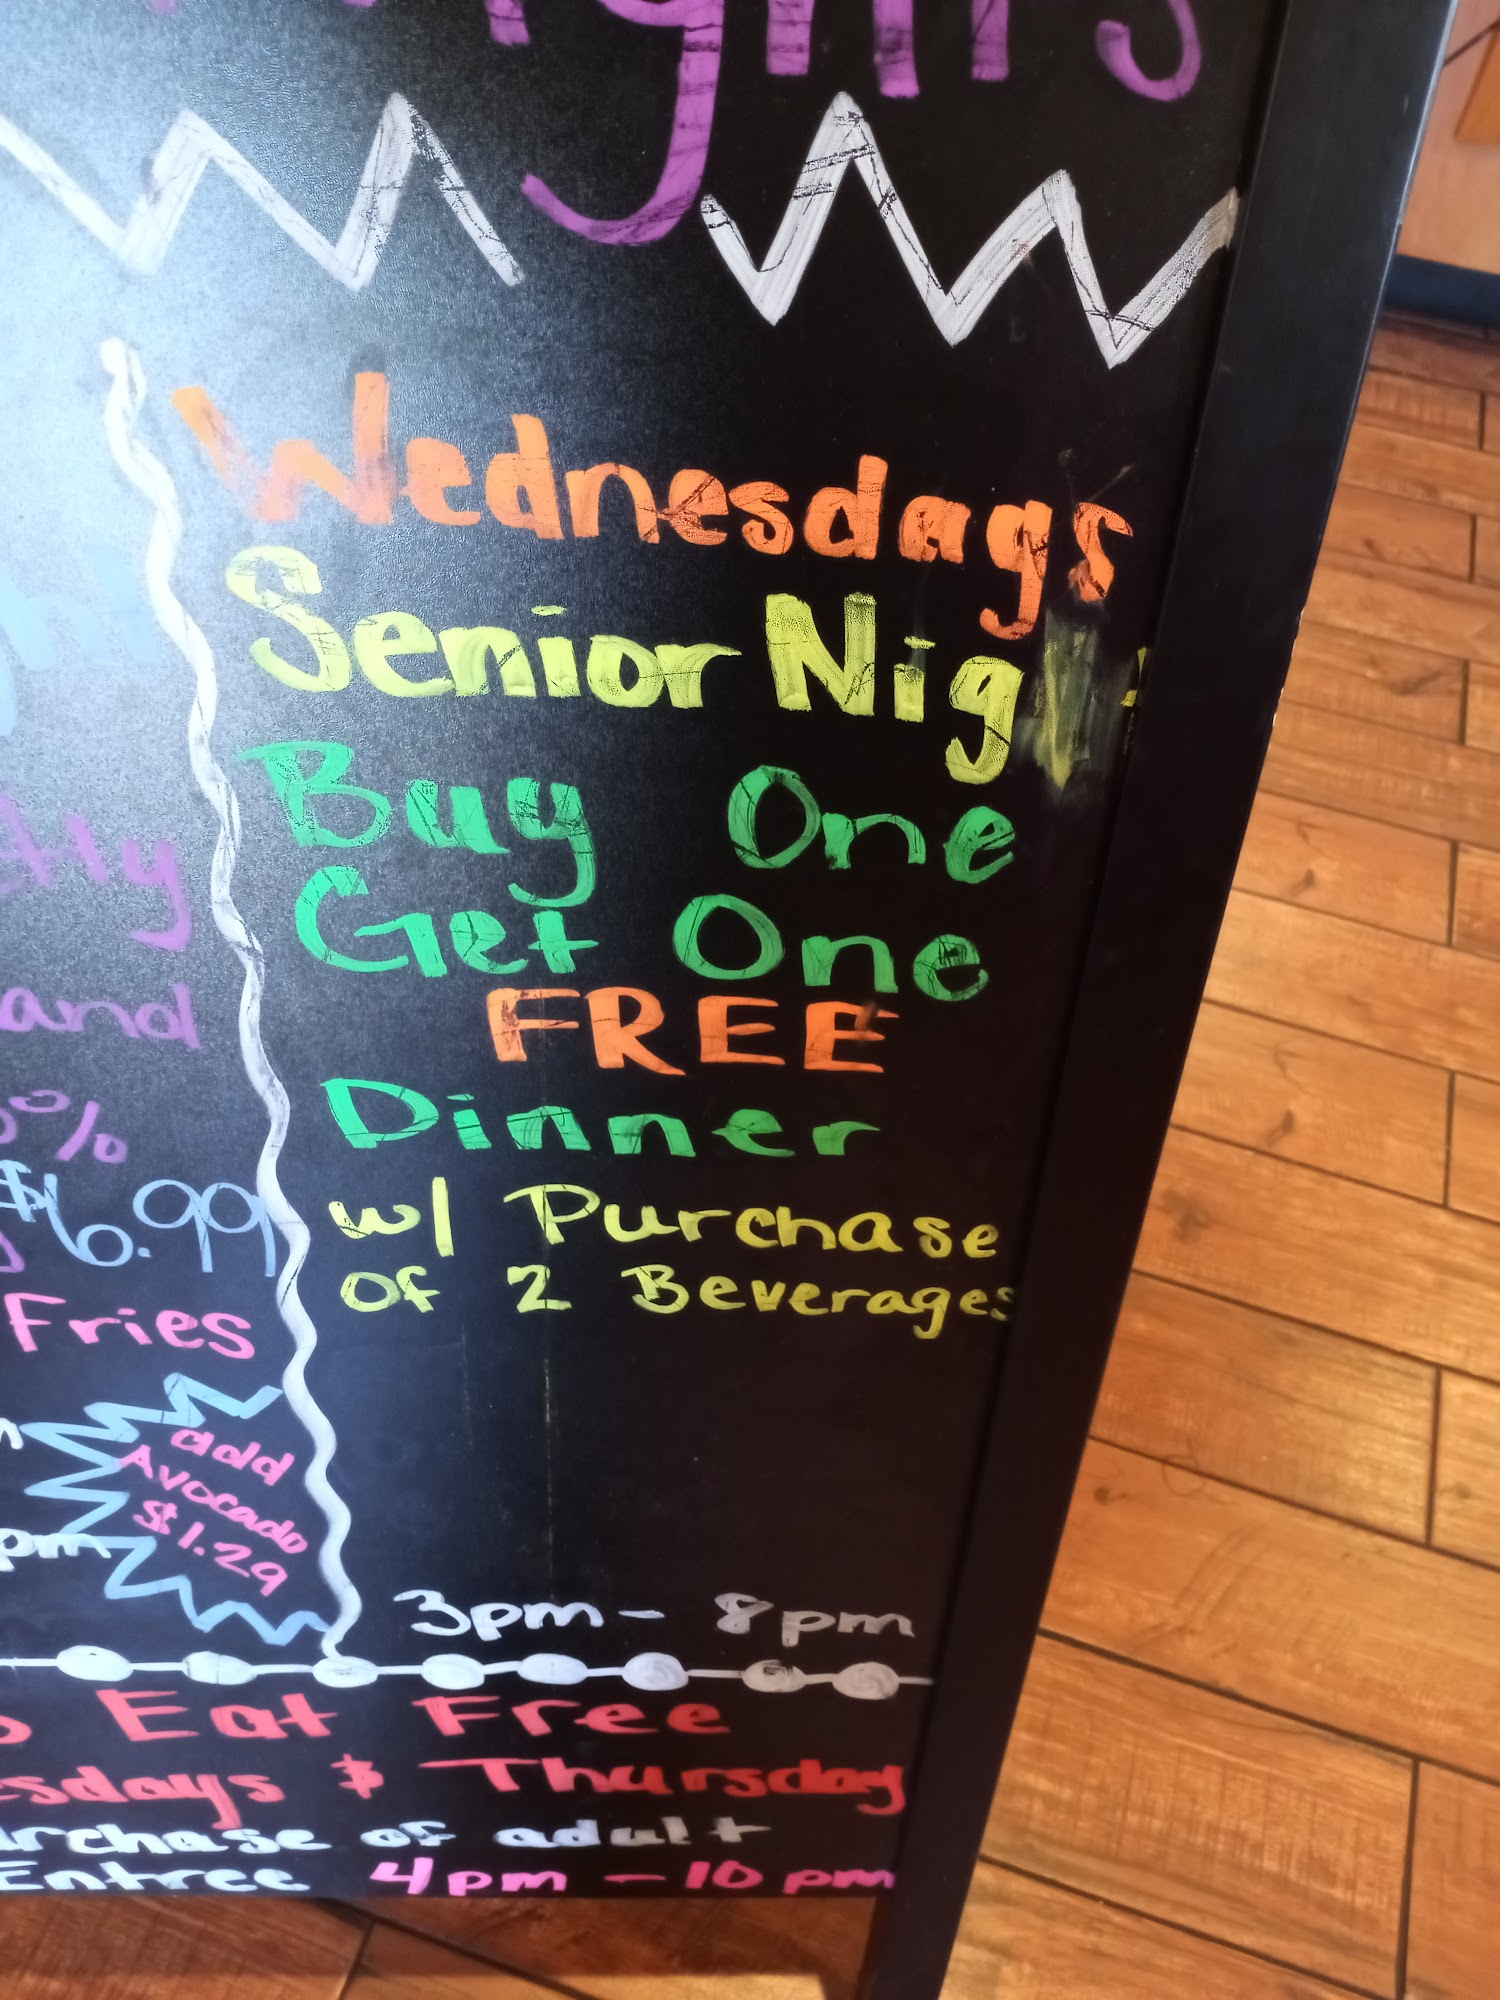 Wednesdays
Senior
Buy One
Get One
FREE
Dinner
w/ Purchase
of 2 Beverages
3pm - 8pm
and
%
$6.99
Fries
add
Avocado
$1.29
pm
Eat Free
& Thursday
of adult
Entree 4pm - 10pm